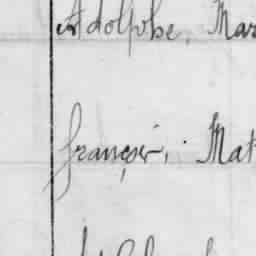 Adolphe, Mar
françois, Mat